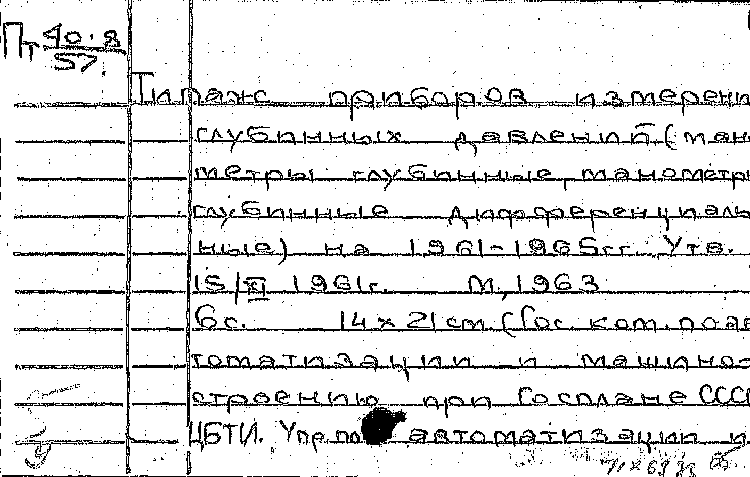 Пт 40.8
57.
Типаж приборов измерени
глубинных давлений (мано
метры глубинные, манометры
глубинные дифференциаль
ные) на 1961-1965гг. Утв.
15/XI 1961г. М, 1963
6с. 14 x 21 см (Гос. ком. по ав
томатизации и машино-
строению при Госплане СССР
ЦБТИ. Упр по автоматизации и